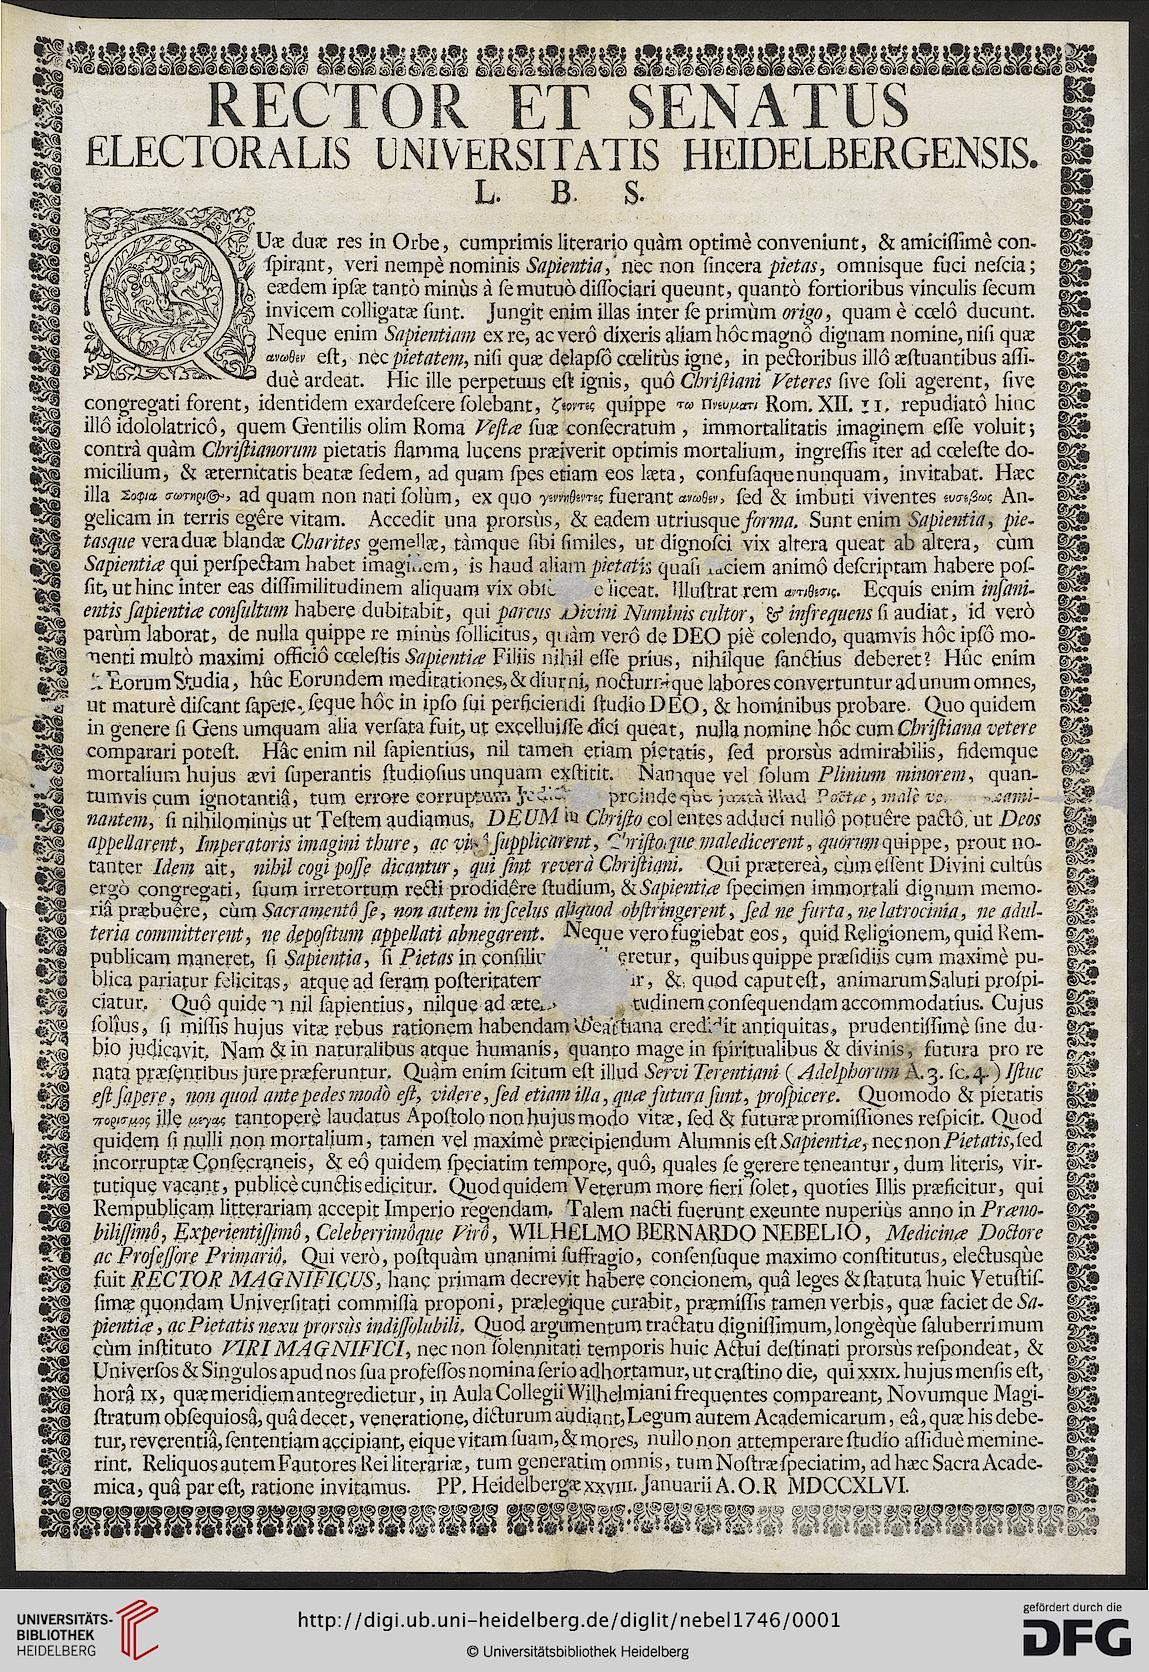 RECTOR ET SENATUS
ELECTORALIS UNIVERSITATIS HEIDELBERGENSIS.
L. B. S.
QUæ duæ res in Orbe, cumprimis literario quàm optimè conveniunt, & amiciſſimè con-
ſpirant, veri nempè nominis Sapientia, nec non ſincera pietas, omnisque fuci neſcia;
eædem ipſæ tantò minùs à ſe mutuò diſſociari queunt, quantò fortioribus vinculis ſecum
invicem colligatæ ſunt. Jungit enim illas inter ſe primùm origo, quam è cœlô ducunt.
Neque enim Sapientiam ex re, ac verô dixeris aliam hôc magnô dignam nomine, niſi quæ
ανωθεν eſt, nec pietatem, niſi quæ delapſô cœlitùs igne, in pectoribus illô æſtuantibus aſſi-
duè ardeat. Hic ille perpetuus eſt ignis, quô Chriſtiani Veteres ſive ſoli agerent, ſive
congregati forent, identidem exardeſcere ſolebant, ζεοντες quippe τω Πνευματι Rom. XII. 11. repudiatô hinc
illô idololatricô, quem Gentilis olim Roma Veſtæ ſuæ conſecratum, immortalitatis imaginem eſſe voluit;
contrà quàm Chriſtianorum pietatis flamma lucens præiverit optimis mortalium, ingreſſis iter ad cœleſte do-
micilium, & æternitatis beatæ ſedem, ad quam ſpes etiam eos læta, confuſaque nunquam, invitabat. Hæc
illa Σοφια σωτηριος, ad quam non nati ſolùm, ex quo γεννηθεντες fuerant ανωθεν, ſed & imbuti viventes ευσεβως An-
gelicam in terris egêre vitam. Accedit una prorsùs, & eadem utriusque forma. Sunt enim Sapientia, pie-
tasque vera duæ blandæ Charites gemellæ, tàmque ſibi ſimiles, ut dignoſci vix altera queat ab altera, cùm
Sapientiæ qui perſpectam habet imaginem, is haud aliam pietatis quaſi faciem animô deſcriptam habere poſ-
ſit, ut hinc inter eas diſſimilitudinem aliquam vix liceat. Illuſtrat rem αντιθεσις. Ecquis enim inſani-
entis ſapientiæ conſultum habere dubitabit, qui parcus Divini Numinis cultor, & infrequens ſi audiat, id verò
parùm laborat, de nulla quippe re minùs ſollicitus, quàm verô de DEO piè colendo, quamvis hôc ipſô mo-
menti multò maximi officiô cœleſtis Sapientiæ Filiis nihil eſſe prius, nihilque ſanctius deberet? Hûc enim
Eorum Studia, hûc Eorundem meditationes, & diurni, nocturnique labores convertuntur ad unum omnes,
ut maturè diſcant ſapere, ſeque hôc in ipſo ſui perficiendi ſtudio DEO, & hominibus probare. Quo quidem
in genere ſi Gens umquam alia verſata fuit, ut excelluiſſe dici queat, nulla nomine hôc cum Chriſtiana vetere
comparari poteſt. Hâc enim nil ſapientius, nil tamen etiam pietatis, ſed prorsùs admirabilis, fidemque
mortalium hujus ævi ſuperantis ſtudioſius unquam exſtitit. Namque vel ſolum Plinium minorem, quan-
tumvis cum ignotantiâ, tum errore corruptum proinde que juxtà illud Poëtæ, malè
nantem, ſi nihilominùs ut Teſtem audiamus, DEUM in Chriſto colentes adduci nullô potuêre pactô, ut Deos
appellarent, Imperatoris imagini thure, ac vinô ſupplicarent, Chriſto que maledicerent, quorum quippe, prout no-
tanter Idem ait, nihil cogi poſſe dicantur, qui ſint reverà Chriſtiani. Qui prætereà, cùm eſſent Divini cultûs
ergò congregati, ſuum irretortum recti prodidêre ſtudium, & Sapientiæ ſpecimen immortali dignum memo-
riâ præbuêre, cùm Sacramentô ſe, non autem in ſcelus aliquod obſtringerent, ſed ne furta, ne latrocinia, ne adul-
teria committerent, ne depoſitum appellati abnegarent. Neque vero fugiebat eos, quid Religionem, quid Rem-
publicam maneret, ſi Sapientia, ſi Pietas in quibus quippe præſidiis cum maximè pu-
blica pariatur felicitas, atque ad ſeram poſteritatem &, quod caput eſt, animarum Saluti proſpi-
ciatur. Quô quidem nil ſapientius, nilque ad conſequendam accommodatius. Cujus
ſolius, ſi miſſis hujus vitæ rebus rationem habendam credidit antiquitas, prudentiſſimè ſine du-
bio judicavit. Nam & in naturalibus atque humanis, quanto mage in ſpiritualibus & divinis, futura pro re
nata præſentibus jure præferuntur. Quàm enim ſcitum eſt illud Servi Terentiani (Adelphorum A. 3. ſc. 4.) Iſtuc
eſt ſapere, non quod ante pedes modò eſt, videre, ſed etiam illa, quæ futura ſunt, proſpicere. Quomodo & pietatis
πορισμος ille μεγας tantoperè laudatus Apoſtolo non hujus modo vitæ, ſed & futuræ promiſſiones reſpicit. Quod
quidem ſi nulli non mortalium, tamen vel maximè præcipiendum Alumnis eſt Sapientiæ, nec non Pietatis, ſed
incorruptæ Conſecraneis, & eô quidem ſpeciatim tempore, quô, quales ſe gerere teneantur, dum literis, vir-
tutique vacant, publicè cunctis edicitur. Quod quidem Veterum more fieri ſolet, quoties Illis præficitur, qui
Rempublicam litterariam accepit Imperio regendam. Talem nacti fuerunt exeunte nuperiùs anno in Præno-
biliſſimô, Experientiſſimô, Celeberrimôque Virô, WILHELMO BERNARDO NEBELIO, Medicinæ Doctore
ac Profeſſore Primariô. Qui verò, poſtquàm unanimi ſuffragio, conſenſuque maximo conſtitutus, electusqùe
fuit RECTOR MAGNIFICUS, hanc primam decrevit habere concionem, quâ leges & ſtatuta huic Vetuſtiſ-
ſimæ quondam Univerſitati commiſſà proponi, prælegique curabit, præmiſſis tamen verbis, quæ faciet de Sa-
pientiæ, ac Pietatis nexu prorsùs indiſſolubili. Quod argumentum tractatu digniſſimum, longèqùe ſaluberrimum
cùm inſtituto VIRI MAGNIFICI, nec non ſolennitati temporis huic Actui deſtinati prorsùs reſpondeat, &
Univerſos & Singulos apud nos ſua profeſſos nomina ſerio adhortamur, ut craſtino die, qui XXIX. hujus menſis eſt,
horâ IX, quæ meridiem antegredietur, in Aula Collegii Wilhelmiani frequentes compareant, Novumque Magi-
ſtratum obſequiosâ, quâ decet, veneratione, dicturum audiant, Legum autem Academicarum, eâ, quæ his debe-
tur, reverentiâ, ſententiam accipiant, eique vitam ſuam, & mores, nullo non attemperare ſtudio aſſiduè memine-
rint. Reliquos autem Fautores Rei literariæ, tum generatim omnis, tum Noſtræ ſpeciatim, ad hæc Sacra Acade-
mica, quâ par eſt, ratione invitamus. PP. Heidelbergæ XXVIII. Januarii A. O. R MDCCXLVI.
UNIVERSITÄTS-
BIBLIOTHEK
HEIDELBERG
http://digi.ub.uni-heidelberg.de/diglit/nebel1746/0001
© Universitätsbibliothek Heidelberg
gefördert durch die
DFG